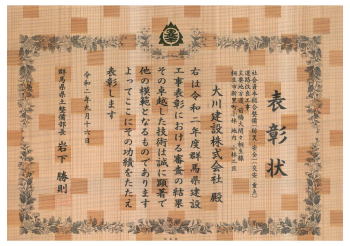 表彰状
社会資本総合整備(防災・安全)(交安・重点)
道路改良工事
主要地方道前橋大間々桐生線
桐生市新里町小林地内 小林工区
大川建設株式会社 殿
右は令和二年度群馬県建設
工事表彰における審査の結果
その卓越した技術は誠に顕著で
他の模範となるものであります
よってここにその功績をたたえ
表彰します
令和二年九月十六日
群馬県県土整備部長 岩下勝則